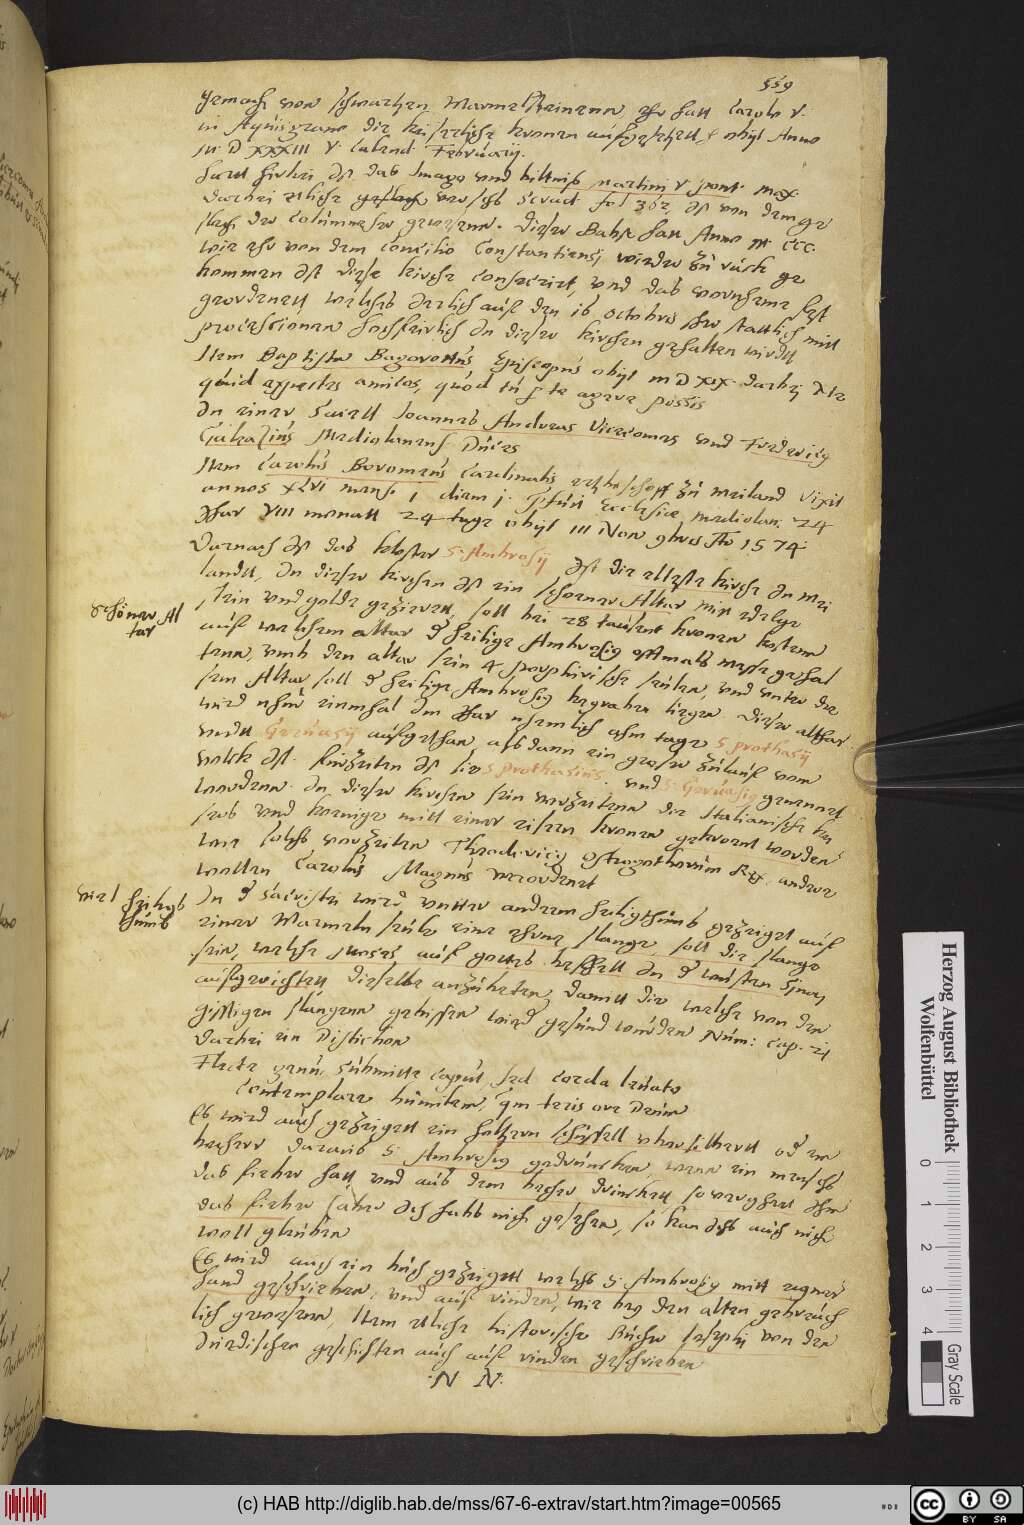 559
gemach von schwartzen Marmelsteinenn, ehr hatt Carolo V.
in Aquisgrano die keiserliche kronen auffgesetzett, obijt Anno
M D XXXIII V. Calend. Februarij.
Hartt hirbei ist das Imago vnd biltnis Martini V pont. max.
darbei etliche verss fol 362, ist von dem ge
schlech der Columneser gewesenn. Dieser Babst hatt Anno M CCCC
wie ehr von dem Concilio Constantiensi wieder zu rück ge
kommen ist diese kirche consecrirt, vnd das vornheme fest
geordenett welches Jerlich auff den 16 octobris sehr stattlich mitt
processionen hochfeirlich in dieser kirchen gehalten wirdtt
Item Baptista Bagorottus Episcopus obijt M D XIX darbei
quid expectes amicos, quod tu p te agere possis
In einer Saiell Joannes Andreas Vicecomes vnd Frederig
Galeazius Mediolanens. Duces
Item Carolus Boromeus Cardinalis ertzbischoff zu Meiland vixit
annos XLVI mens. 1 diem j. Prefuit Ecclesiæ Mediolan. 24
Jhar VIII monatt 24 tage obijt III Non 9bris Ao 1574
Darnach ist das kloster S. Ambrosij ist die elteste kirche in Mei
landtt, In dieser kirchen ist ein schoener Altar mitt edelge
stein vnd golde gezierett, soll bei 28 tausent kronen kosten
Schöner Al
tar
auff welchem altar d heilige Ambrosig offtmals messe gehal
tenn, vmb den altar sein 4 porphirische seulen, vnd vnter die
sem Altar soll d heilige Ambrosig begraben liegen dieser althar
wird nhur einmhal im Jhar nhemlich ahm tage S prothasij
vndtt Geruasij auffgethan, alsdann ein groser zulauff vom
volck ist. hirzeiten ist S prothasius vnd S. Geruasig genennet
wordenn. In dieser kirchen sein vorzeitenn die Italianische kei
ser vnd koenige mitt einer eisern kronen gekroent worden
wie solchs vorzeiten Theodericg Ostrogothorum Rex, andere
wollen Carolus Magnus verordenet
Viel heiligth
thumb
In d Sacristei wird vntter anderm heiligthumb gezeiget auff
einer Marmeln seulen eine ehrne slange, soll die slange
sein, welche Moses auff gottes befhell in d wüsten Sinaj
auffgerichtett dieselbe anzubeten, damitt die welche von den
gifftigen slangenn gebissen wird gesund würden Num: cap. 21
darbei ein Distichon
Flecte genu, submitte caput, sed corda leuato
Contemplare humilem, qm teris ore Deum
Es wird auch gezeigett ein holtzern schüssell vbersilbertt od ein
becherr daraus S Ambrosig gedruncken, wenn ein mensch
das fieber hatt, vnd aus dem becher drincktt, so vergehett ihm
das fieber, aber ich habs nicht gesehen, so kan ichs auch nicht
woll glauben
Es wird auch ein buch gezeigett welchs S. Ambrosig mitt eigner
hand geschrieben, vnd auff rinden, wie bey den alten gebreuch
lich gewesenn, Item etliche historische Bücher Josephj von den
Jüdischen geschichten auch auff rinden geschrieben
N N:
Herzog August Bibliothek
Wolfenbüttel
0 1 2 3 4
Gray Scale
(c) HAB http://diglib.hab.de/mss/67-6-extrav/start.htm?image=00565
WDB
cc BY SA